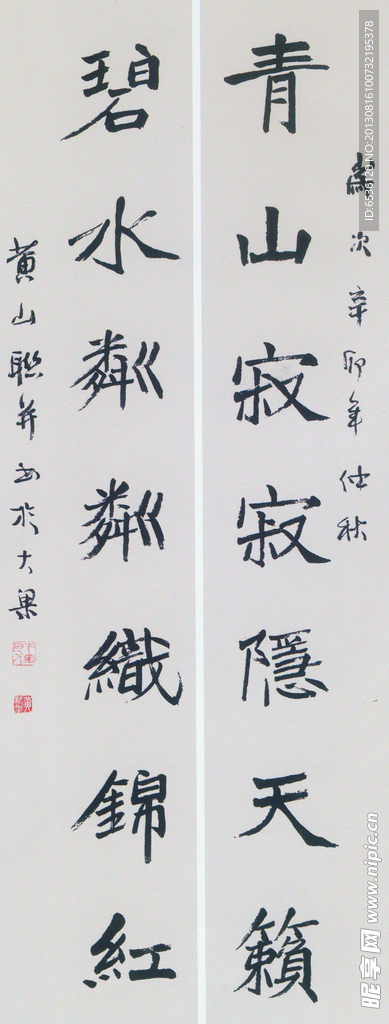 歲次辛卯年仲秋
青山寂寂隱天籟
碧水粼粼織錦紅
黄山聯并书於大梁
ID:6536120 NO:20130816100732195378
昵享网 www.nipic.cn